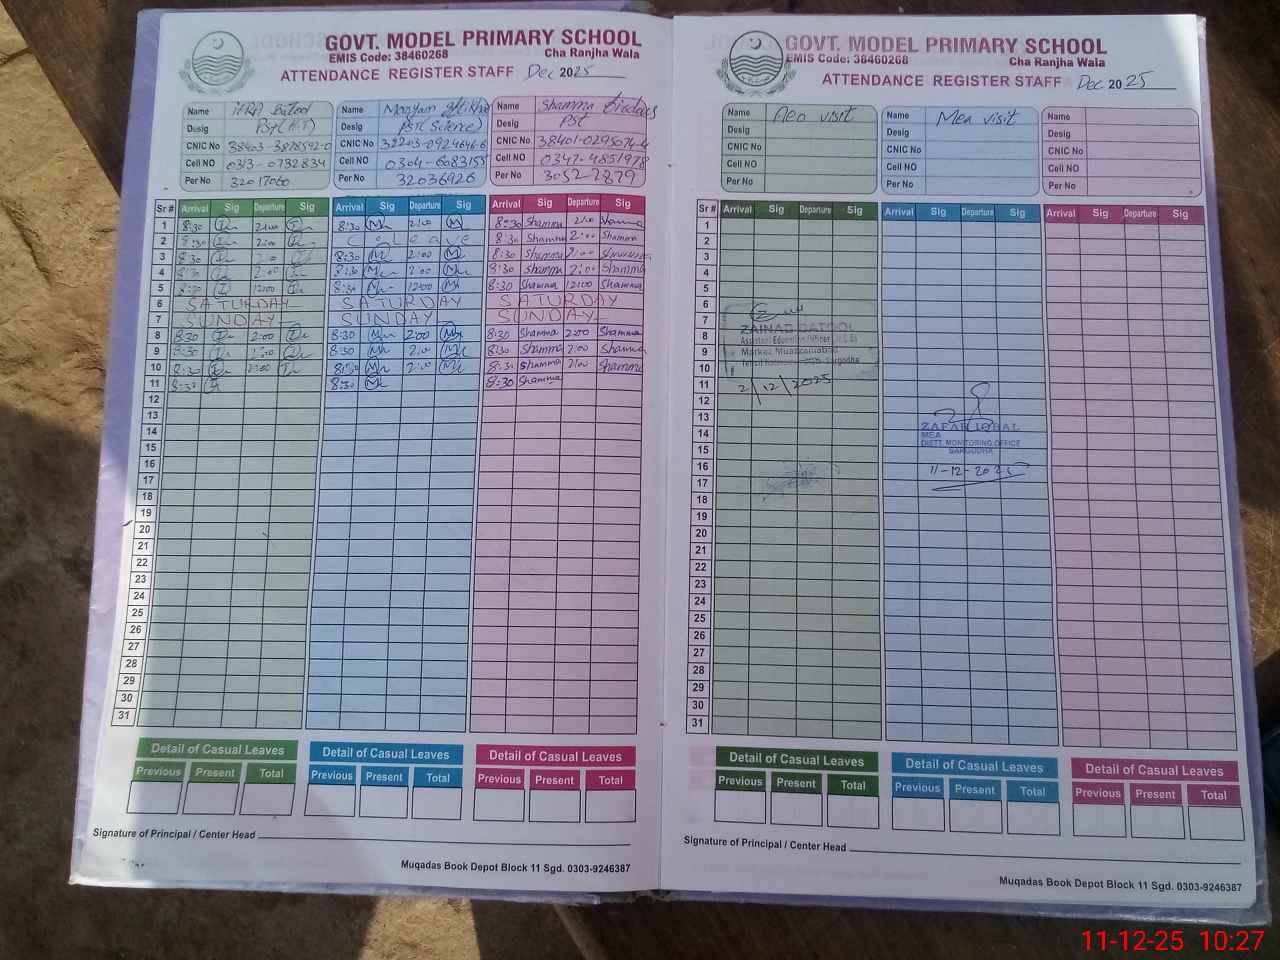 GOVT. MODEL PRIMARY SCHOOL
EMIS Code: 38460268 Cha Ranjha Wala
ATTENDANCE REGISTER STAFF Dec 2025
Name IFRA Batool
Desig PST(H.T)
CNIC No 38403-3878542-0
Cell NO 0313-0732834
Per No 32017060
Name Maryam
Desig PST(Science)
CNIC No 32203-0924646-6
Cell NO 0304-6083155
Per No 32036926
Name Shamma Firdous
Desig PST
CNIC No 38401-0295074-4
Cell NO 0347-4851978
Per No 3052-2879
Sr # Arrival Sig Departure Sig Arrival Sig Departure Sig Arrival Sig Departure Sig
1 8:30 2:00 8:30 M 2:00 M 8:30 Shamma 2:00 Shamma
2 8:30 2:00 C.Leave 8:30 Shamma 2:00 Shamma
3 8:30 2:00 8:30 M 2:00 M 8:30 Shamma 2:00 Shamma
4 8:30 2:00 8:30 M 2:00 M 8:30 Shamma 2:00 Shamma
5 8:30 12:00 8:30 M 12:00 M 8:30 Shamma 12:00 Shamma
6 SATURDAY SATURDAY SATURDAY
7 SUNDAY SUNDAY SUNDAY
8 8:30 2:00 8:30 M 2:00 M 8:30 Shamma 2:00 Shamma
9 8:30 2:00 8:30 M 2:00 M 8:30 Shamma 2:00 Shamma
10 8:30 2:00 8:30 M 2:00 M 8:30 Shamma 2:00 Shamma
11 8:30 8:30 M 8:30 Shamma
12
13
14
15
16
17
18
19
20
21
22
23
24
25
26
27
28
29
30
31
Detail of Casual Leaves Detail of Casual Leaves Detail of Casual Leaves
Previous Present Total Previous Present Total Previous Present Total
Signature of Principal / Center Head
Muqadas Book Depot Block 11 Sgd. 0303-9246387
GOVT. MODEL PRIMARY SCHOOL
EMIS Code: 38460268 Cha Ranjha Wala
ATTENDANCE REGISTER STAFF Dec 2025
Name Aeo visit
Desig
CNIC No
Cell NO
Per No
Name Mea visit
Desig
CNIC No
Cell NO
Per No
Name
Desig
CNIC No
Cell NO
Per No
Sr # Arrival Sig Departure Sig Arrival Sig Departure Sig Arrival Sig Departure Sig
1
2
3
4
5
6
7
8
9
10
11
12
13
14
15
16
17
18
19
20
21
22
23
24
25
26
27
28
29
30
31
ZAINAB BATOOL
Assistant Education Officer
Markaz Muazzamabad
Sargodha
2/12/2025
ZAFAR IQBAL
MEA
DISTT. MONITORING OFFICE
SARGODHA
11-12-2025
Detail of Casual Leaves Detail of Casual Leaves Detail of Casual Leaves
Previous Present Total Previous Present Total Previous Present Total
Signature of Principal / Center Head
Muqadas Book Depot Block 11 Sgd. 0303-9246387
11-12-25 10:27